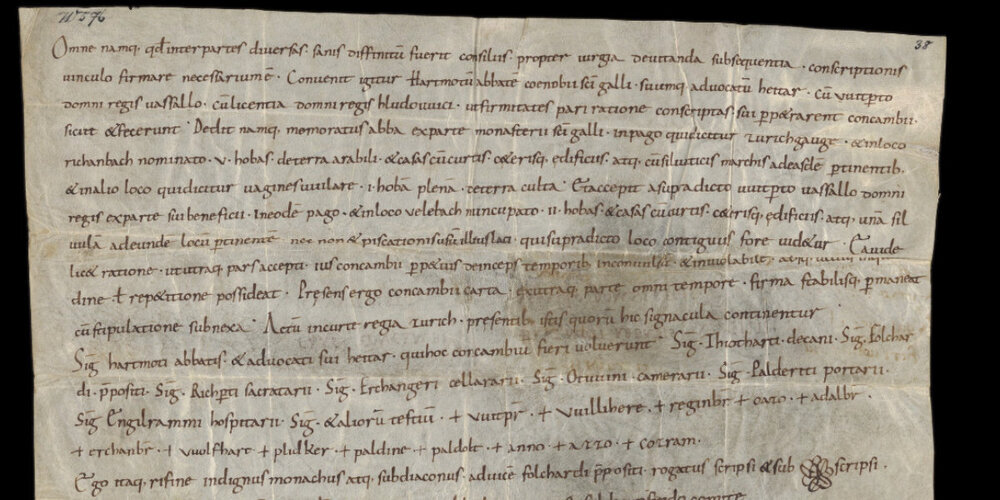 W 596
38
Omne namq. qd inter partes diversas. sanis diffinitū fuerit consiliis. propter iurgia devitanda subsequentia. conscriptionis
vinculo firmare necessariumē. Convenit igitur Hartmotū abbatē coenobii sci galli. suumq. advocatū heitar. cū vuitpto
domni regis vassallo. cū licentia domni regis hludouuici. ut firmitates pari ratione conscriptas. sui ppetrarent concambii.
sicut & fecerunt. Dedit namq. memoratus abba ex parte monasterii sci galli. in pago qui dicitur zurichgauge. & in loco
richanbach nominato. v. hobas. de terra arabili. & casas cū curtis. ceterisq. edificiis. atq. cū silvaticis marchis ad easdē ptinentib.
& in alio loco qui dicitur vaginesuuilare. i. hobā plenā. de terra culta. Et accepit a supradicto vuitpto vassallo domni
regis ex parte sui beneficii. in eodē pago. & in loco velebach nuncupato. ii. hobas & casas cū curtis. ceterisq. edificiis. atq. unā sil
vulā ad eundē locū ptinentē nec non & piscationis usū illius laci. qui supradicto loco contiguus fore videtur. Ea vide
licet ratione. ut utraq. pars accepti. ius concambii ppetuis deinceps temporib. inconvulse. & inviolabilit.
dine t repetitione possideat. Presens ergo concambii carta. ex utraq. parte omni tempore. firma stabilisq. pmaneat
cū stipulatione subnexa. Actū in curte regia zurich. presentib. istis quorū hic signacula continentur
Sig hartmoti abbatis. & advocati sui heitar. qui hoc concambiū fieri voluerunt. Sig. Thiotharti. decani. Sig. Folchar
di. ppositi. Sig. Richpti sacratarii. Sig. Erchangeri cellararii. Sig. Otuuini. camerarii. Sig. Paldertti portarii.
Sig Engilrammi hospitarii. Sig. & aliorū testiū. + vuitpr. + vuillihere. + reginbr. + oazo. + adalbr.
+ erchanbr. + vuolfhart. + plidker. + paldine. + paldolt. + anno. + azzo. + cozram.
Ego itaq. risine indignus monachus atq. subdiaconus. advicē folchardi ppositi. rogatus scripsi & sub scripsi.
comite